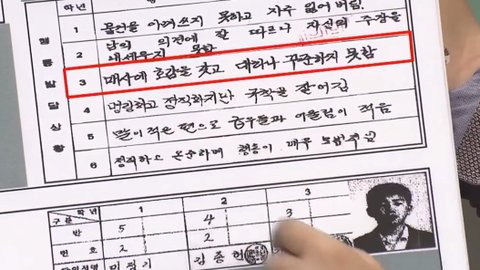 학년
행동발달상황
1 물건을 아껴쓰지 못하고 자주 잃어버림.
2 남의 의견에 잘 따르나 자신의 주장을
내세우지 못함
3 매사에 호감을 갖고 대하나 꾸준하지 못함
4 명랑하고 정직하지만 규칙을 잘 어김
5 말이 적은 편으로 급우들과 어울림이 적음
6 정직하고 온순하며 행동이 매우 모범적임
학년 1 2 3
구분
반 5 4 3
번호 2 2
김종헌